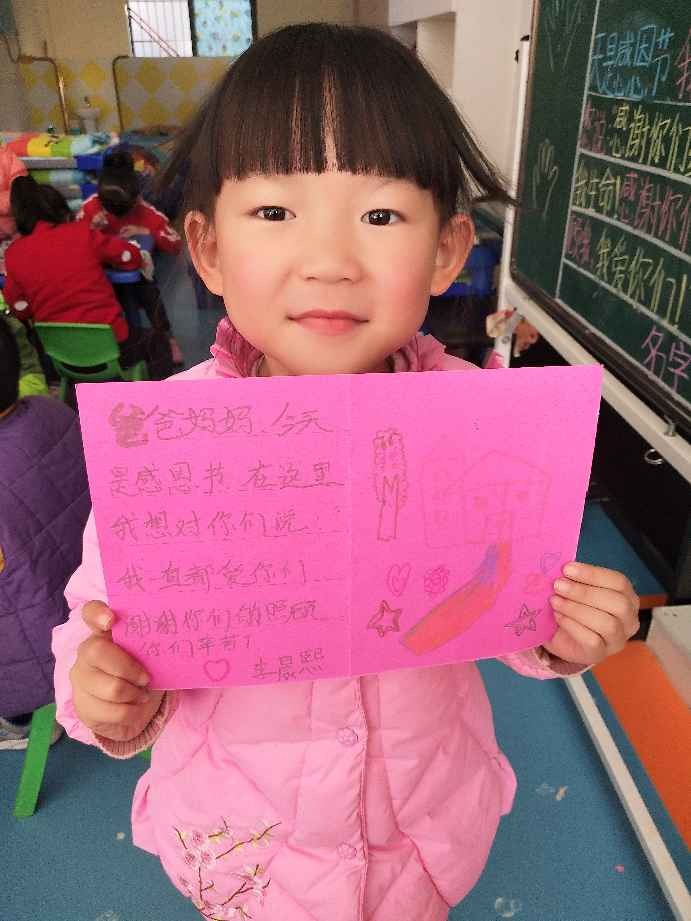 爸爸妈妈 今天
是感恩节 在这里
我想对你们说:
我一直都爱你们
谢谢你们的照顾
你们辛苦了
晨熙
天是感恩节 我
感谢你们
我生命!感谢你们
我爱你们!
名字